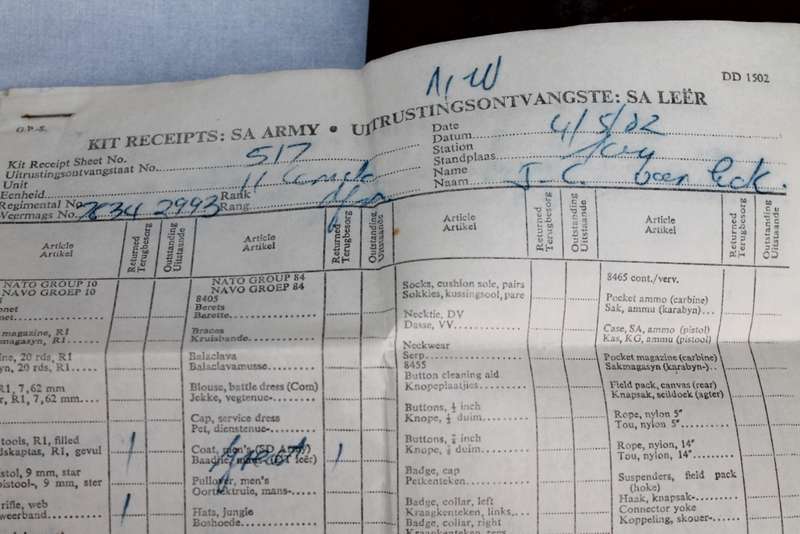 DD 1502
G.P.-S.
KIT RECEIPTS: SA ARMY • UITRUSTINGSONTVANGSTE: SA LEËR
Kit Receipt Sheet No.
Uitrustingsontvangstaat No. 517
Unit
Eenheid 11
Regimental No. Rank
Weermags No. 2993 Rang
Date
Datum 4/5/82
Station
Standplaas
Name
Naam J C
Article
Artikel
Returned
Terugbesorg
Outstanding
Uitstaande
Article
Artikel
Returned
Terugbesorg
Outstanding
Uitstaande
Article
Artikel
Returned
Terugbesorg
Outstanding
Uitstaande
Article
Artikel
Returned
Terugbesorg
Outstanding
Uitstaande
NATO GROUP 10
NAVO GROEP 10
magazine, R1
magasyn, R1
20 rds, R1
20 rds, R1
R1, 7,62 mm
R1, 7,62 mm
tools, R1, filled
R1, gevul 1
9 mm, star
9 mm, ster
rifle, web
1
NATO GROUP 84
NAVO GROEP 84
8405
Berets
Berette
Braces
Kruisbande
Balaclava
Balaclavamusse
Blouse, battle dress (Com)
Jekke, vegtenue-
Cap, service dress
Pet, dienstenue-
Coat, men's (SD Army)
leër) 1
Pullover, men's
Oortrektruie, mans-
Hats, Jungle
Boshoede
Socks, cushion sole, pairs
Sokkies, kussingsool, pare
Necktie, DV
Dasse, VV
Neckwear
Serp
8455
Button cleaning aid
Knopeplaatjies
Buttons, ½ inch
Knope, ½ duim
Buttons, inch
Knope, duim
Badge, cap
Petkenteken
Badge, collar, left
Kraagkenteken, links
Badge, collar, right
Kraagkenteken, regs
8465 cont./verv.
Pocket ammo (carbine)
Sak, ammu (karabyn)
Case, SA, ammo (pistol)
Kas, KG, ammu (pistool)
Pocket magazine (carbine)
Sakmagasyn (karabyn-)
Field pack, canvas (rear)
Knapsak, seildoek (agter)
Rope, nylon 5"
Tou, nylon 5"
Rope, nylon, 14"
Tou, nylon, 14"
Suspenders, field pack
(hoke)
Haak, knapsak-
Connector yoke
Koppeling, skouer-